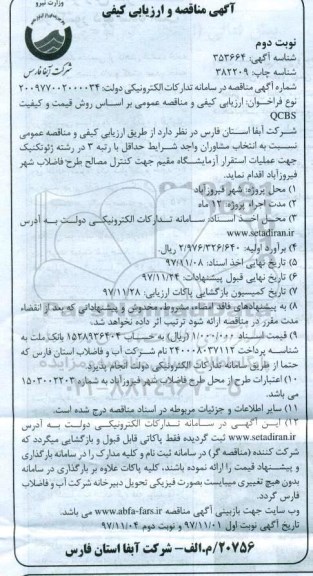 وزارت نیرو
آگهی مناقصه و ارزیابی کیفی
شرکت آبفا فارس
نوبت دوم
شناسه آگهی: ۳۵۳۶۶۴
شناسه چاپ: ۳۸۲۲۰۹
شماره آگهی مناقصه در سامانه تدارکات الکترونیکی دولت: ۲۰۰۹۷۷۰۰۲۰۰۰۰۰۳۴
نوع فراخوان: ارزیابی کیفی و مناقصه عمومی بر اساس روش قیمت و کیفیت
QCBS
شرکت آبفا استان فارس در نظر دارد از طریق ارزیابی کیفی و مناقصه عمومی
نسبت به انتخاب مشاوران واجد شرایط حداقل با رتبه ۳ در رشته ژئوتکنیک
جهت عملیات استقرار آزمایشگاه مقیم جهت کنترل مصالح طرح فاضلاب شهر
فیروزآباد اقدام نماید.
۱) محل پروژه: شهر فیروزآباد
۲) مدت اجراء پروژه: ۱۲ ماه
۳) محل اخذ اسناد: سامانه تدارکات الکترونیکی دولت به آدرس
www.setadiran.ir
۴) برآورد اولیه: ۲/۹۷۶/۳۲۶/۶۴۰ ریال.
۵) تاریخ نهایی اخذ اسناد: ۹۷/۱۱/۰۸
۶) تاریخ نهایی قبول پیشنهادات: ۹۷/۱۱/۲۴
۷) تاریخ کمیسیون بازگشایی پاکات ارزیابی: ۹۷/۱۱/۲۸
۸) به پیشنهادهای فاقد امضاء، مشروط، مخدوش و پیشنهاداتی که بعد از انقضاء
مدت مقرر در مناقصه ارائه شود ترتیب اثر داده نخواهد شد.
۹) قیمت اسناد ۱/۰۰۰/۰۰۰ (ریال) به حساب ۱۵۲۸۹۳۶۴۰۴ بانک ملت به
شناسه پرداخت ۲۴۰۰۰۸۰۳۷۱۱۲ نام شرکت آب و فاضلاب استان فارس که
حتما از طریق سامانه تدارکات الکترونیکی دولت انجام پذیرد.
۱۰) اعتبارات طرح از محل طرح فاضلاب شهر فیروزآباد به شماره ۱۵۰۳۰۰۲۲۰۳
می باشد.
۱۱) سایر اطلاعات و جزئیات مربوطه در اسناد مناقصه درج شده است.
۱۲) این آگهی در سامانه تدارکات الکترونیکی دولت به آدرس
www.setadiran.ir ثبت گردیده فقط پاکاتی قابل قبول و بازگشایی میگردد که
شرکت کننده (مناقصه گر) در سامانه ثبت نام و کلیه مدارک را در سامانه بارگذاری
و پیشنهاد قیمت را ارائه نموده باشند، کلیه پاکات علاوه بر بارگذاری در سامانه
بدون هیچ تغییری میبایست بصورت فیزیکی تحویل دبیرخانه شرکت آب و فاضلاب
فارس گردد.
وب سایت جهت بازبینی آگهی مناقصه www.abfa-fars.ir می باشد.
تاریخ آگهی نوبت اول ۹۷/۱۱/۰۱ و نوبت دوم ۹۷/۱۱/۰۴
۲۰۷۵۶/م.الف- شرکت آبفا استان فارس